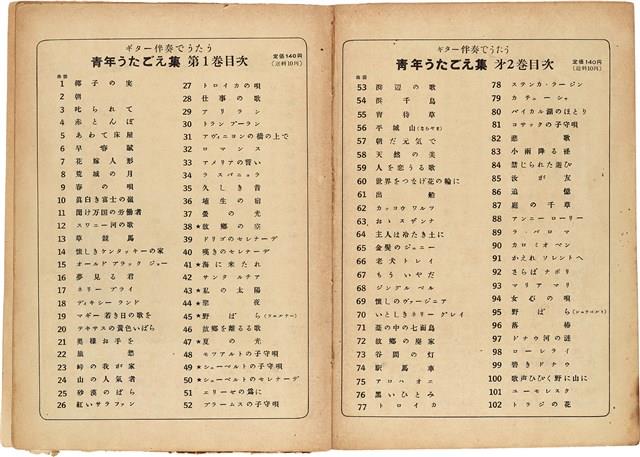 ギター伴奏でうたう
青年うたごえ集 第1巻目次
定価140円
(送料10円)
曲番
1 椰子の実
2 朝
3 叱られて
4 赤とんぼ
5 あわて床屋
6 早春賦
7 花嫁人形
8 荒城の月
9 春の唄
10 真白き富士の嶺
11 聞け万国の労働者
12 スワニー河の歌
13 草競馬
14 懐しきケンタッキーの家
15 オールド ブラック ジョー
16 夢見る君
17 ネリー ブライ
18 ディキシー ランド
19 マギー若き日の歌を
20 テキサスの黄色いばら
21 奥様お手を
22 旅愁
23 峠の我が家
24 山の人気者
25 砂漠のばら
26 紅いサラファン
27 トロイカの唄
28 仕事の歌
29 アリラン
30 トランプーラン
31 アヴィニヨンの橋の上で
32 ロマンス
33 アメリアの誓い
34 ラスパニョラ
35 久しき昔
36 埴生の宿
37 螢の光
38 ★故郷の空
39 ドリゴのセレナーデ
40 嘆きのセレナーデ
41 ★海に来たれ
42 サンタ ルチア
43 ★私の太陽
44 ★聖夜
45 ★野ばら(ウェルナー)
46 故郷を離るる歌
47 ★夏の光
48 モツアルトの子守唄
49 ★シューベルトの子守唄
50 ★シューベルトのセレナーデ
51 エリーゼの為に
52 ブラームスの子守唄
ギター伴奏でうたう
青年うたごえ集 才2巻目次
定価140円
(送料10円)
曲番
53 浜辺の歌
54 浜千鳥
55 宵待草
56 平城山(ならやま)
57 朝だ元気で
58 天然の美
59 人を恋うる歌
60 世界をつなげ花の輪に
61 出船
62 カッコウ ワルツ
63 おゝスザンナ
64 主人は冷たき土に
65 金髪のジェニー
66 老犬トレイ
67 もういやだ
68 ジングル ベル
69 懐しのヴァージニア
70 いとしきネリー グレイ
71 藁の中の七面鳥
72 故郷の廃家
73 谷間の灯
74 駅馬車
75 アロハオエ
76 黒いひとみ
77 トロイカ
78 ステンカ・ラージン
79 カチューシャ
80 バイカル湖のほとり
81 コサックの子守唄
82 悲歌
83 小雨降る径
84 禁じられた遊び
85 汝が友
86 追憶
87 庭の千草
88 アンニー ローリー
89 ラ・パロマ
90 カロ ミオ ベン
91 かえれ ソレントへ
92 さらば ナポリ
93 マリア マリ
94 女心の唄
95 野ばら(シューベルト)
96 落椿
97 ドナウ河の謎
98 ローレライ
99 碧きドナウ
100 歌声ひびく野に山に
101 ユーモレスク
102 トラジの花